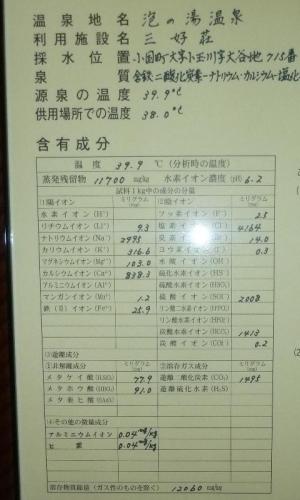 温泉地名 泡の湯温泉
利用施設名 三好荘
採水位置 小国町大字小玉川字大谷地 715番
泉質 含鉄-二酸化炭素-ナトリウム・カルシウム-塩化
源泉の温度 39.9℃
供用場所での温度 38.0℃
含有成分
温度 39.9 ℃ (分析時の温度)
蒸発残留物 11700 mg/kg 水素イオン濃度 (pH) 6.2
試料1kg中の成分の分量
①陽イオン ミリグラム (mg) ②陰イオン ミリグラム (mg)
水素イオン (H⁺) フッ素イオン (F⁻) 2.5
リチウムイオン (Li⁺) 9.3 塩素イオン (Cl⁻) 4164
ナトリウムイオン (Na⁺) 2995 14.0
カリウムイオン (K⁺) 316.6 0.3
マグネシウムイオン 103.0 水酸イオン
カルシウムイオン 838.3 硫化水素イオン
アルミニウムイオン
マンガンイオン 1.2 硫酸イオン 2008
鉄(Ⅱ)イオン 25.9
炭酸水素イオン 1413
炭酸イオン 0.2
③遊離成分
①非解離成分 ミリグラム (mg) ②溶存ガス成分 ミリグラム (mg)
メタケイ酸 77.9 遊離二酸化炭素 (CO₂) 1495
メタホウ酸 91.0 遊離硫化水素 (H₂S)
メタ亜ヒ酸
④その他の微量成分
アルミニウムイオン 0.04 mg/kg
ヒ素 0.04 mg/kg
溶存物質総量 (ガス性のものを除く) 12060 mg/kg